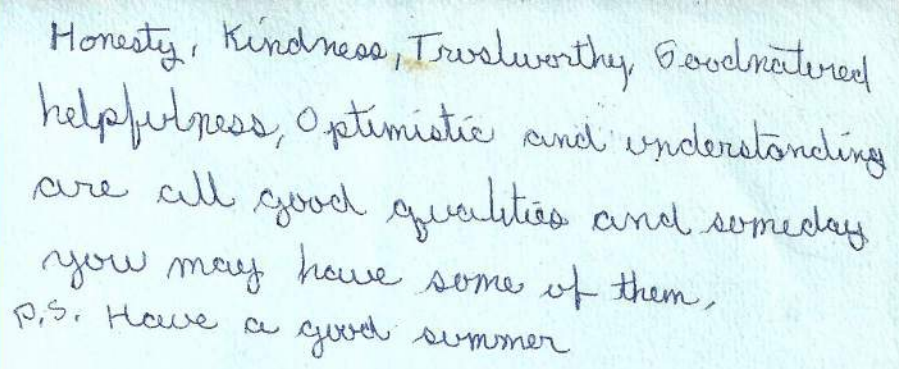 Honesty, Kindness, Trustworthy, Goodnatured
helpfulness, Optimistic and understanding
are all good qualities and someday
you may have some of them.
P.S. Have a good summer